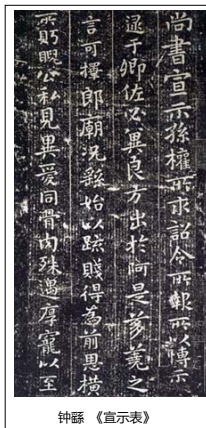 尚書宣示孫權所求詔令所報所以博示
逮于卿佐必異良方出於阿是芻蕘之
言可擇郎廟況繇始以疏賤得爲前恩橫
所眄睨公私見異愛同骨肉殊遇厚寵以至
钟繇 《宣示表》